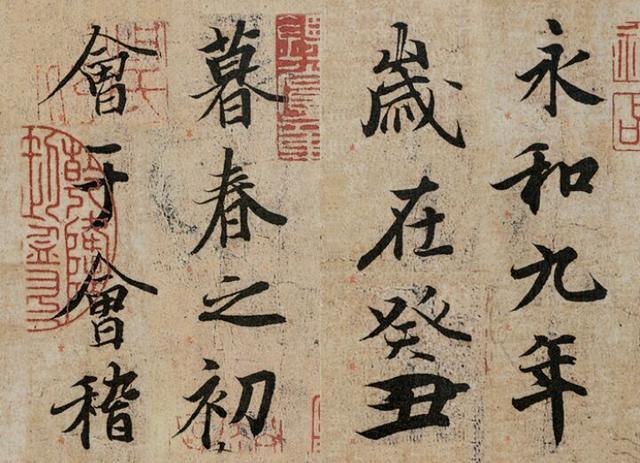 永和九年
歲在癸丑
暮春之初
會于會稽